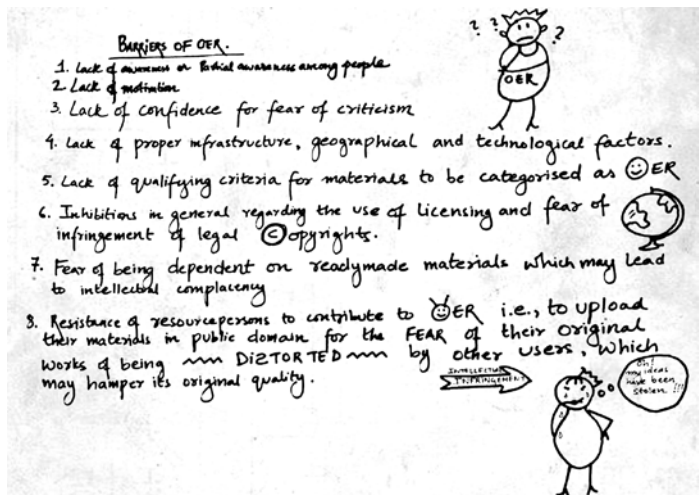 BARRIERS OF OER.
? ? ?
OER
1. Lack of awareness or Partial awareness among people
2. Lack of motivation
3. Lack of confidence for fear of criticism
4. Lack of proper infrastructure, geographical and technological factors.
5. Lack of qualifying criteria for materials to be categorised as OER
6. Inhibitions in general regarding the use of licensing and fear of
infringement of legal ©opyrights.
7. Fear of being dependent on readymade materials which may lead
to intellectual complacency
8. Resistance of resourcepersons to contribute to OER i.e., to upload
their materials in public domain for the FEAR of their original
works of being DISTORTED by other users, which
may hamper its original quality.
INTELLECTUAL
INFRINGEMENT
Oh!
my ideas
have been
stolen !!!